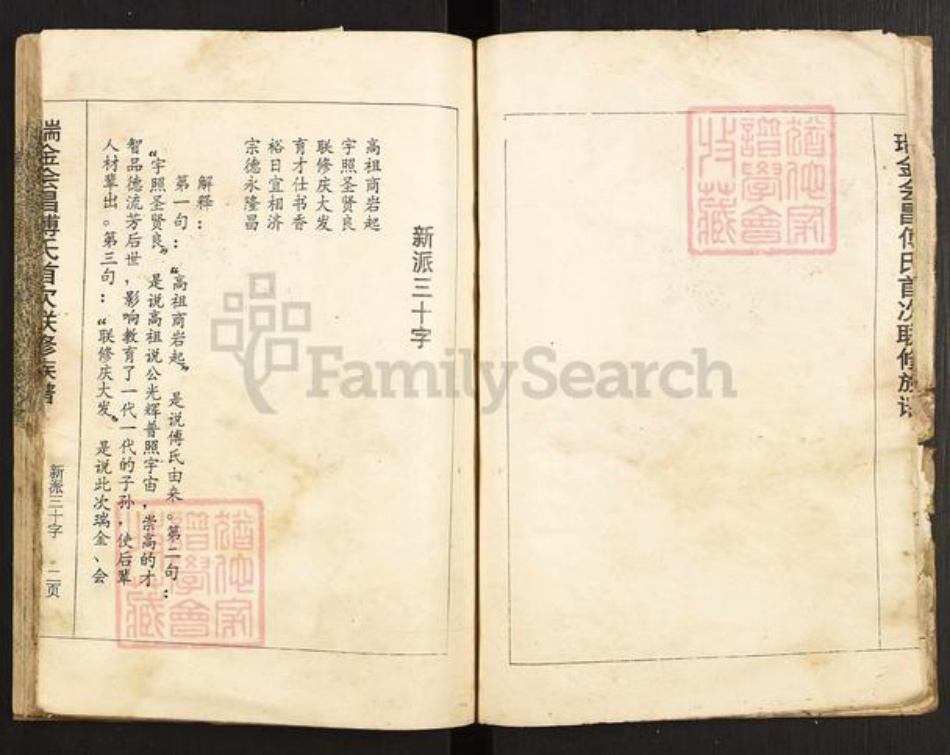 瑞金会昌傅氏首次联修族谱
新派三十字
高祖商岩起
宇照圣贤良
联修庆大发
育才仕书香
裕日宜相济
宗德永隆昌
解释：
第一句：“高祖商岩起”是说傅氏由来。第二句：
“宇照圣贤良”是说高祖说公光辉普照宇宙，崇高的才
智品德流芳后世，影响教育了一代一代的子孙，使后辈
人材辈出。第三句：“联修庆大发”是说此次瑞金、会
瑞金会昌傅氏首次联修族谱
新派三十字
二页
猶他家
譜學會
收藏
猶他家
譜學會
收藏
FamilySearch